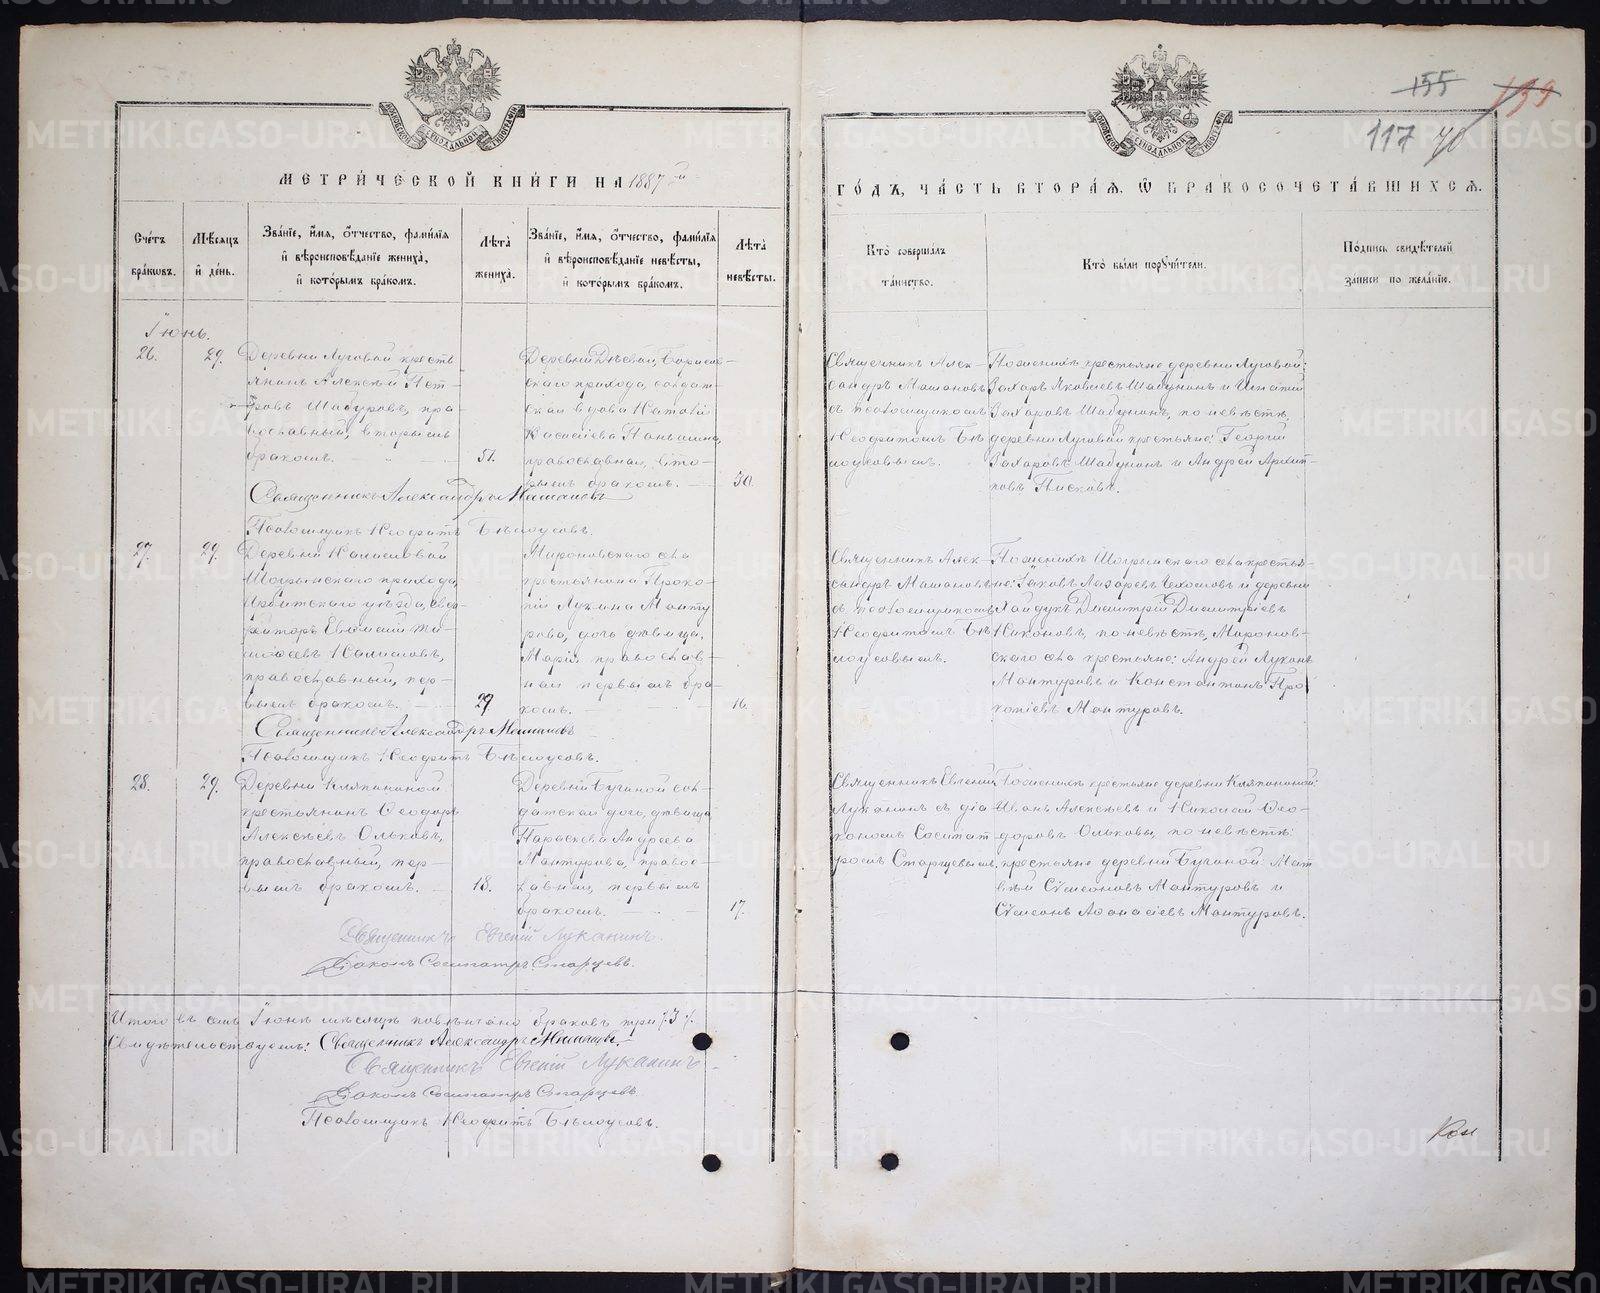 155
159
117
70
МЕТРИЧЕСКОЙ КНИГИ НА 1887 й
ГОДЪ, ЧАСТЬ ВТОРАЯ, Ѽ БРАКОСОЧЕТАВШИХСЯ.
Счетъ браковъ.
Мѣсяцъ и день.
Званіе, имя, отчество, фамилія и вѣроисповѣданіе жениха, и которымъ бракомъ.
Лѣта жениха.
Званіе, имя, отчество, фамилія и вѣроисповѣданіе невѣсты, и которымъ бракомъ.
Лѣта невѣсты.
Кто совершалъ таинство.
Кто были поручители.
Подпись свидѣтелей записи по желанію.
Іюнь.
26.
29.
Деревни Луговой кресть-
янинъ Алексѣй Пет-
ровъ Шабуровъ, пра-
вославный, вторымъ
бракомъ.
51.
Деревни Борисов-
скаго прихода, солдат-
ская вдова
Васильева Паньшина,
православная, вто-
рымъ бракомъ.
30.
Священникъ Алек-
сандръ Машановъ
съ псаломщикомъ
Неофитомъ Бѣ-
лоусовымъ.
По женихѣ крестьяне деревни Луговой:
Захаръ Яковлевъ Шабунинъ и
Захаровъ Шабунинъ, по невѣстѣ,
деревни Луговой крестьяне: Георгій
Захаровъ Шабунинъ и Андрей Архип-
повъ
Священникъ Александръ Машановъ
Псаломщикъ Неофитъ Бѣлоусовъ.
27.
29.
Деревни Налимовой
Шогрышскаго прихода,
Ирбитскаго уѣзда,
Евфимій Ти-
моѳеевъ Налимовъ,
православный, пер-
вымъ бракомъ.
29.
Мироновскаго села
крестьянина Проко-
пія Лукина Манту-
рова, дочь дѣвица,
Марія, православ-
ная первымъ бра-
комъ.
16.
Священникъ Алек-
сандръ Машановъ
съ псаломщикомъ
Неофитомъ Бѣ-
лоусовымъ.
По женихѣ Шогрышскаго села крестья-
не: Іаковъ Лазаревъ и деревни
Хайдукъ Димитрій Димитріевъ
Никоновъ, по невѣстѣ, Миронов-
скаго села крестьяне: Андрей Лукинъ
Мантуровъ и Константинъ Про-
копіевъ Мантуровъ.
Священникъ Александръ Машановъ
Псаломщикъ Неофитъ Бѣлоусовъ.
28.
29.
Деревни Кляпиной
крестьянинъ Ѳеодоръ
Алексѣевъ Ольковъ,
православный, пер-
вымъ бракомъ.
18.
Деревни Бучиной сол-
датская дочь, дѣвица
Параскева Андреева
Мантурова, правос-
лавная, первымъ
бракомъ.
17.
Священникъ Евгеній
Луканинъ съ діа-
кономъ Сосипат-
ромъ Старцевымъ.
По женихѣ крестьяне деревни Кляпиной:
Иванъ Алексѣевъ и Николай Ѳео-
доровъ Ольковы, по невѣстѣ:
крестьяне деревни Бучиной: Мат-
вѣй Сѵмеоновъ Мантуровъ и
Сѵмеонъ Аѳанасіевъ Мантуровъ.
Священникъ Евгеній Луканинъ.
Діаконъ Сосипатръ Старцевъ.
Итого въ семъ Іюнѣ мѣсяцѣ повѣнчано браковъ три /:3:/.
Свидѣтельствуемъ: Священникъ Александръ Машановъ.
Священникъ Евгеній Луканинъ.
Діаконъ Сосипатръ Старцевъ.
Псаломщикъ Неофитъ Бѣлоусовъ.
METRIKI.GASO-URAL.RU